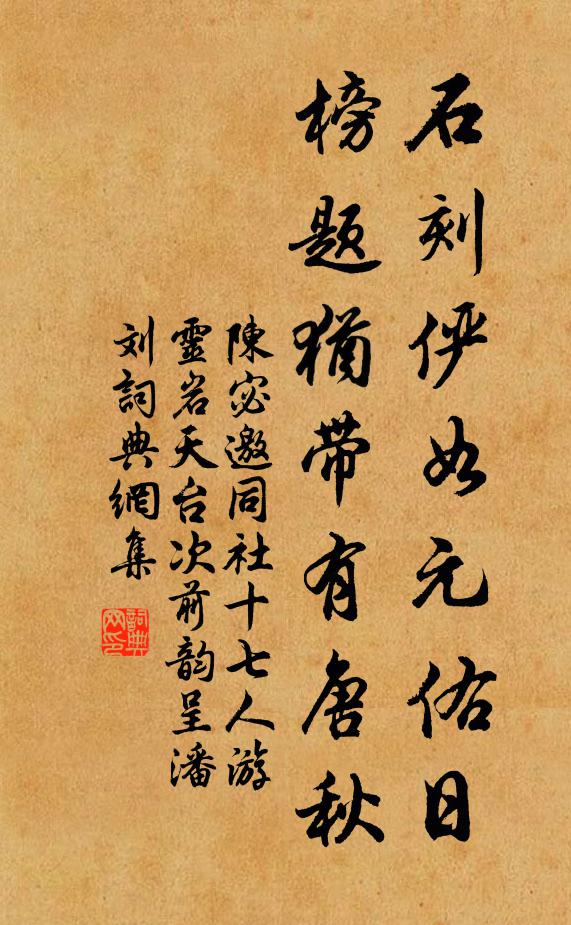 石刻俨如元佑日
榜题犹带有唐秋
陳宓邀同社十七人游
靈岩天台次前韵呈潘
刘詞典網集
詞典网印